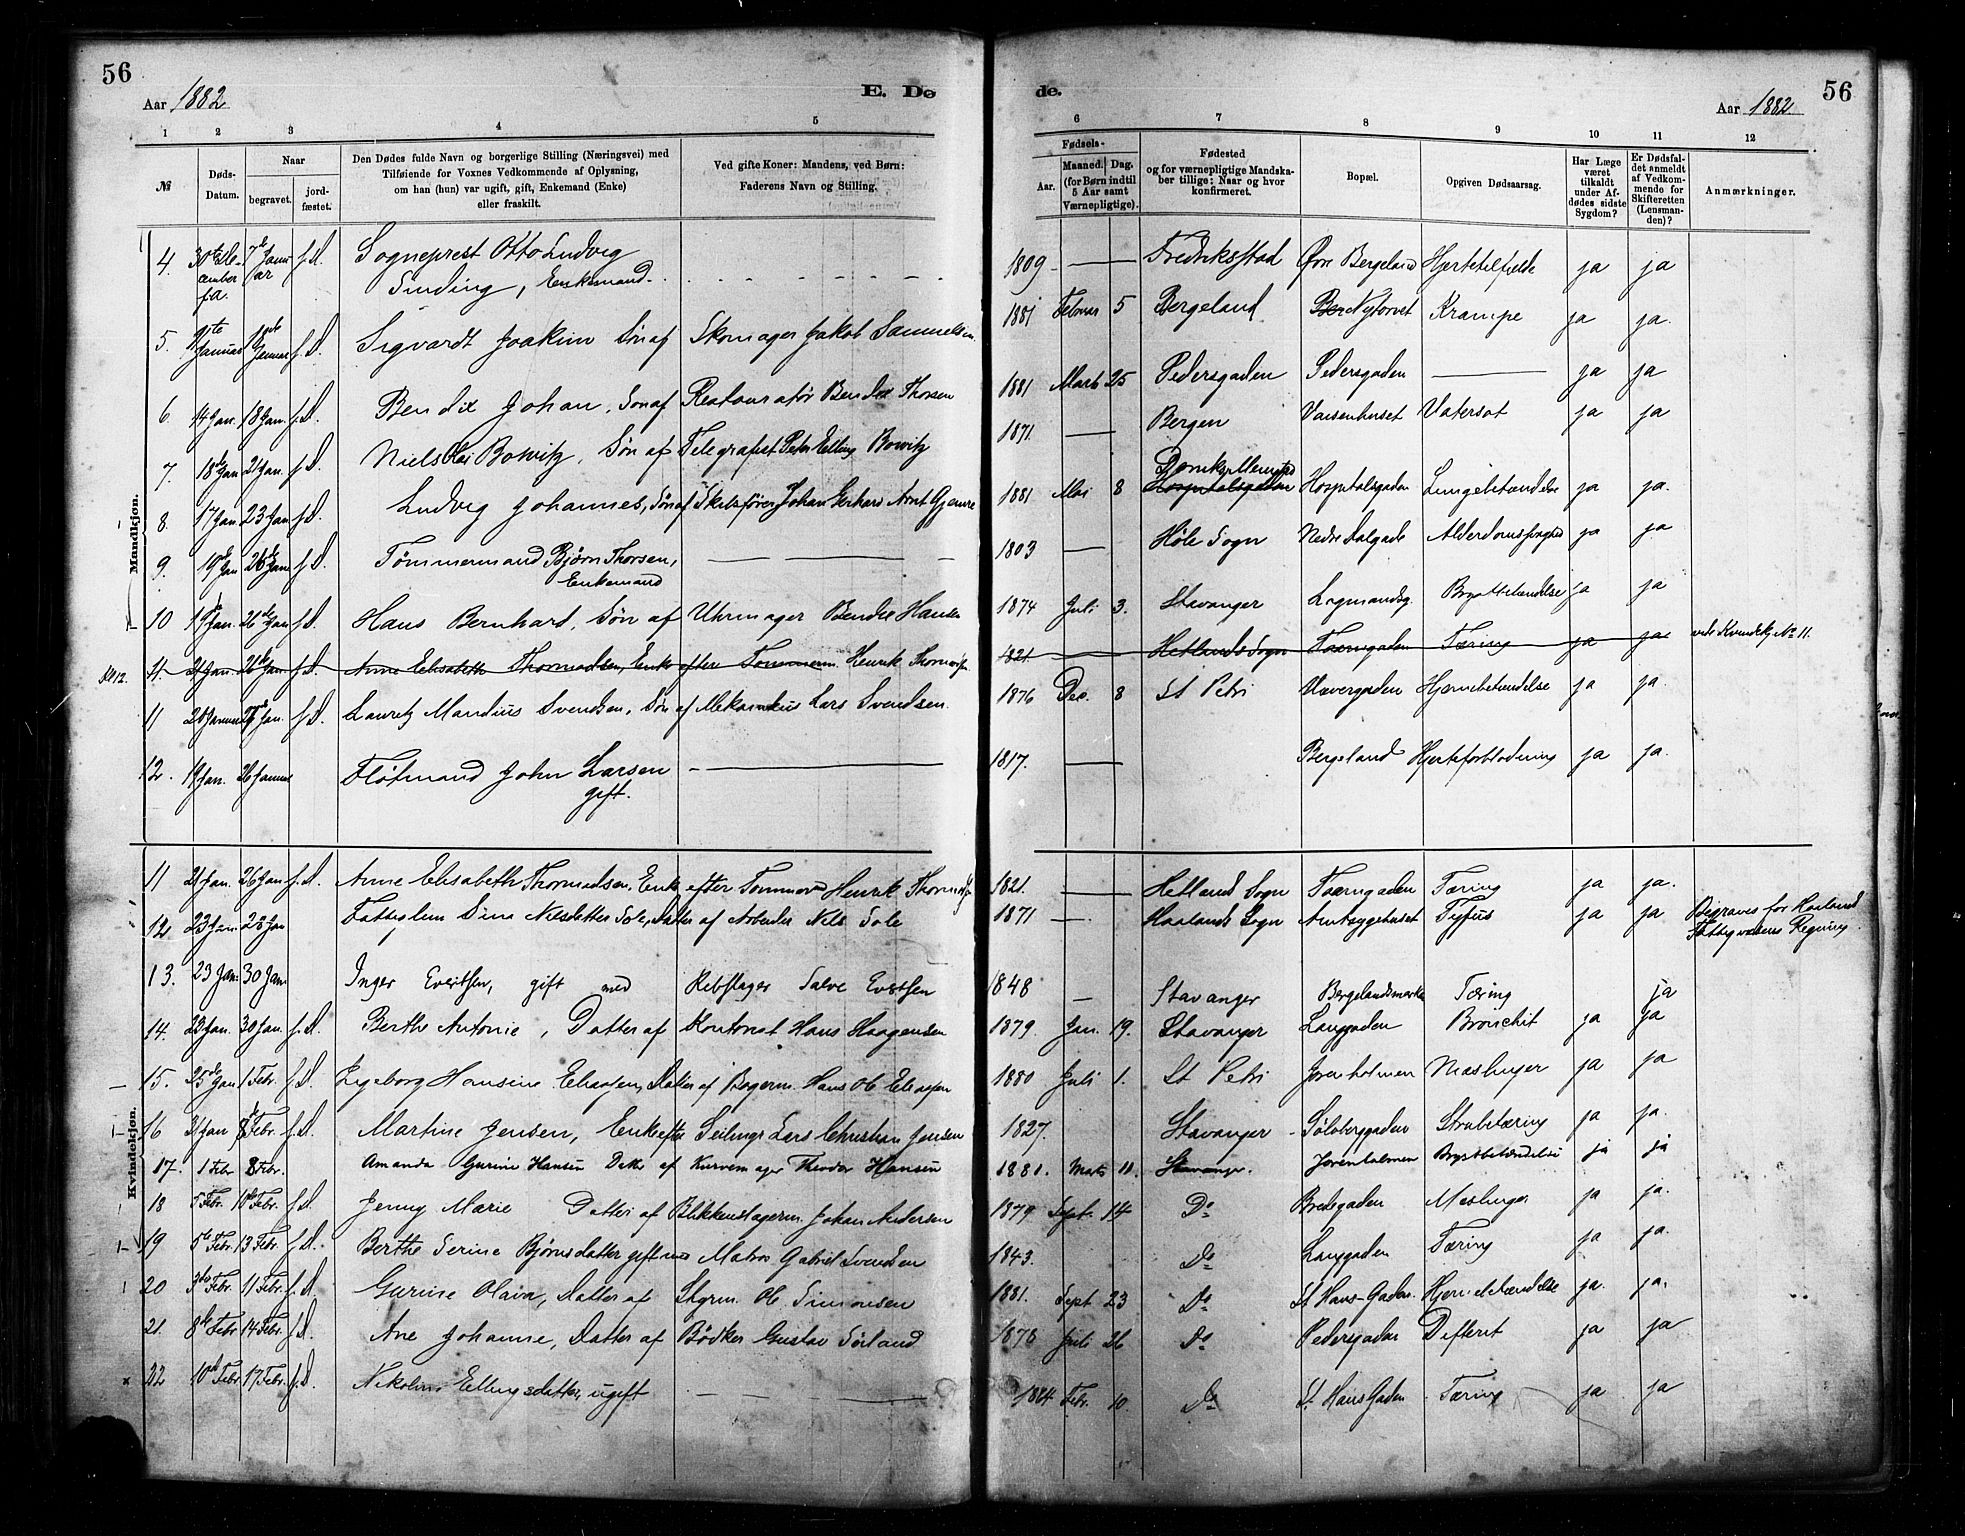 56
Aar 1882
E. Dø
de.
Aar 1882
56
1 2 3 4 5 6 7 8 9 10 11 12
№ Døds-Datum. Naar begravet. jord-fæstet. Den Dødes fulde Navn og borgerlige Stilling (Næringsvei) med Tilføiende for Voxnes Vedkommende af Oplysning, om han (hun) var ugift, gift, Enkemand (Enke) eller fraskilt. Ved gifte Koner: Mandens, ved Børn: Faderens Navn og Stilling. Fødsels- Aar. Maaned. Dag. (for Børn indtil 5 Aar samt Værnepligtige). Fødested og for værnepligtige Mandskaber tillige: Naar og hvor konfirmeret. Bopæl. Opgiven Dødsaarsag. Har Læge været tilkaldt under Afdødes sidste Sygdom? Er Dødsfaldet anmeldt af Vedkommende for Skifteretten (Lensmanden)? Anmærkninger.
Mandkjøn.
4. 30te December f.A. 7de Januar f.D. Sogneprest Otto Ludvig Sinding, Enkemand. 1809 — Fredriksstad Øvr. Bergeland Hjertetilfælde ja ja
5. Januar Januar f.D. Sigvardt Joakim Søn af Skomager Jakob Samuelsen 1881 Februar 5 Bergeland Nytorvet Krampe ja ja.
6. 14 Jan. 18 Jan. f.D. Bendix Johan, Søn af Restauratør Bendix Thorsen 1881 Marts 25 Pedersgaden Pedersgaden — ja ja
7. 18de Jan 21 Jan. f.D. Niels Bowitz, Søn af Telegrafist Peter Elling Bowitz 1871. — Bergen Vaisenhuset Vatersot ja ja
8. 17 Jan. 23 Jan f.D. Ludvig Johannes, Søn af Johan Gerhard Arnt Gjemre 1881 Mai 8 Hospitalsgaden Hospitalsgaden Lungebetændelse ja ja.
9. 19de Jan 26de Jan f.D. Tømmermand Bjørn Thorsen, Enkemand — 1803 — Høle Sogn Nedre Dalgade ja ja
10 19 Jan. 26de Jan f.D. Hans Bernhard, Søn af Uhrmager Bendix Hansen 1874 Juli 3. Stavanger Lagmandsg. Brystbetændelse ja ja
11. 21 Jan. 26de Jan. f.D. Anne Elisabeth Thormodsen, Enke efter Tømmerm. Henrik Thormodsen 1821. Hetlands Sogn Taarngaden Tæring ja ja vide Kvindekj. No 11.
11 20 Januar 27de Jan. f.D. Lauritz Mandius Svendsen, Søn af Mekanikus Lars Svendsen. 1876 Dec. 8 St Petri Vævergaden Hjernebetændelse ja ja.
12. 19 Jan. 26 Januar Fløtmand John Larsen gift. — 1817. — Bergeland Hjerteforblødning ja ja.
Kvindekjøn.
11 21 Jan. 26 Jan f.D. Anne Elisabeth Thormodsen, Enke efter Tømmerm. Henrik Thormodsen 1821. — Hetland Sogn Taarngaden Tæring ja ja.
12 23 Jan 28 Jan Fattiglem Sina Nilsdatter Sole, Datter af Arbeider Nils Sole 1871 —. Haalands Sogn Amtssygehuset Tyfus ja ja Begraves for Haaland Fattigvæsens Regning
13. 23 Jan. 30 Jan Inger Evertsen, gift med Rebslager Salve Evertsen 1848 — Stavanger Bergelandsmarken Tæring ja
14. 23 Jan. 30 Jan. f.D. Berthe Antonie, Datter af Kontorist Hans Haagensen 1879. Jan. 19. Stavanger Langgaden Bronchit ja ja
15. 25de Jan 1 Febr. f.D. Ingeborg Hansine Eliassen, Datter af Bogerm. Hans Ol. Eliassen 1880 Juli 1. St Petri Jorenholmen Mæslinger ja ja
16 31 Jan 8de Febr. f.D. Martine Jensen, Enke efter Lars Christian Jensen 1827. Stavanger Sølvberggaden Strubetæring ja ja.
17. 1 Febr 8 Febr. Amanda Gurine Hansen Datter af Kurvemager Theodor Hansen 1881. Mars 11. Stavanger. Jorenholmen Brystbetændelse ja ja
18 5 Febr. 10de Febr. f.D. Jenny Marie Datter af Blikkenslagerm. Johan Andersen 1879 Sept. 14 Do Bredegaden Mæslinger ja ja.
19 5te Febr. 13 Febr. f.D. Berthe Serine Bjørnsdatter gift med Matros Gabriel Svendsen 1843. Do Langgaden Tæring ja ja.
20 3die Febr. 11 Febr. f.D. Gurine Olava, Datter af Styrm. Ol. Simonsen 1881. Sept 23 Do St Hans-Gaden. Hjernebetændelse ja. ja.
21. 8de Febr 14 Febr. f.D. Ane Johanne, Datter af Bødker Gustav Sørland 1878 Juli 26 Do Pedersgaden Difterit ja ja
22 10de Febr. 17 Febr. f.D. Nikoline Ellingsdatter, ugift — Febr. 10 Do St HansGaden Tæring ja ja